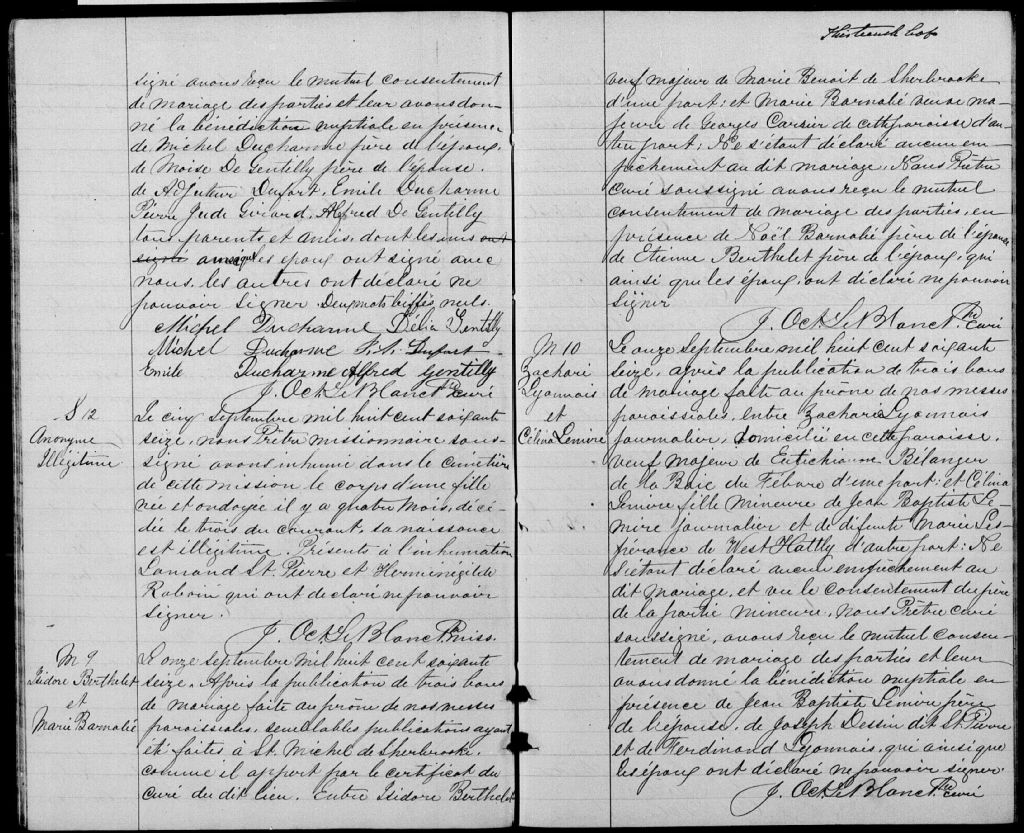 signé avons reçu le mutuel consentement
de mariage des parties et leur avons don-
né la bénédiction nuptiale en présence
de Michel Ducharme père de l'époux,
de Moise De Gentilly père de l'épouse.
de Adjuteur Dufort, Emile Ducharme
Pierre Jude Girard, Alfred De Gentilly
tous parents et amis, dont les uns ont
signé ainsi que les époux ont signé avec
nous, les autres ont déclaré ne
pouvoir signer Deux mots biffés nuls.
Michel Ducharme Délia Gentilly
Michel Ducharme F. A. Dufort
Emile Ducharme Alfred Gentilly
J. Oct. LeBlanc Ptre curé
S 12
Anonyme
Illégitime
Le cinq septembre mil huit cent soixante
seize, nous Prêtre missionnaire sous-
signé avons inhumé dans le cimetière
de cette mission le corps d'une fille
née et ondoyée il y a quatre mois, décé-
dée le trois du courant, sa naissance
est illégitime. Présents à l'inhumation
St. Pierre et Herménégilde
qui ont déclaré ne pouvoir
signer.
J. Oct. LeBlanc Ptre miss.
M 9
Isidore Berthelet
et
Marie Barnabé
Le onze septembre mil huit cent soixante
seize. Après la publication de trois bans
de mariage faite au prône de nos messes
paroissiales, semblables publications ayant
été faites à St. Michel de Sherbrooke,
comme il appert par le certificat du
curé du dit lieu. Entre Isidore Berthelet
Thirteenth
veuf majeur de Marie Benoit de Sherbrooke
d'une part; et Marie Barnabé veuve ma-
jeure de Georges Carrier de cette paroisse d'au-
tre part; Ne s'étant déclaré aucun em-
pêchement au dit mariage, Nous Prêtre
curé soussigné avons reçu le mutuel
consentement de mariage des parties, en
présence de Noël Barnabé père de l'épouse
de Etienne Berthelet père de l'époux, qui
ainsi que les époux, ont déclaré ne pouvoir
signer
J. Oct. LeBlanc Ptre curé
M 10
Zacharie
Lyonnais
et
Célina Lemire
Le onze septembre mil huit cent soixante
seize, après la publication de trois bans
de mariage faite au prône de nos messes
paroissiales, entre Zacharie Lyonnais
journalier, domicilié en cette paroisse,
veuf majeur de Eutichianne Bélanger
de la Baie du Febvre d'une part: et Célina
Lemire fille mineure de Jean Baptiste Le-
mire journalier et de défunte Marie Les-
pérance de West Hattly d'autre part: Ne
s'étant déclaré aucun empêchement au
dit mariage, et vu le consentement du père
de la partie mineure, nous Prêtre curé
soussigné, avons reçu le mutuel consen-
tement de mariage des parties et leur
avons donné la bénédiction nuptiale en
présence de Jean Baptiste Lemire père
de l'épouse, de Joseph Dessin dit St. Pierre
et de Ferdinand Lyonnais, qui ainsi que
les époux ont déclaré ne pouvoir signer.
J. Oct. LeBlanc Ptre curé